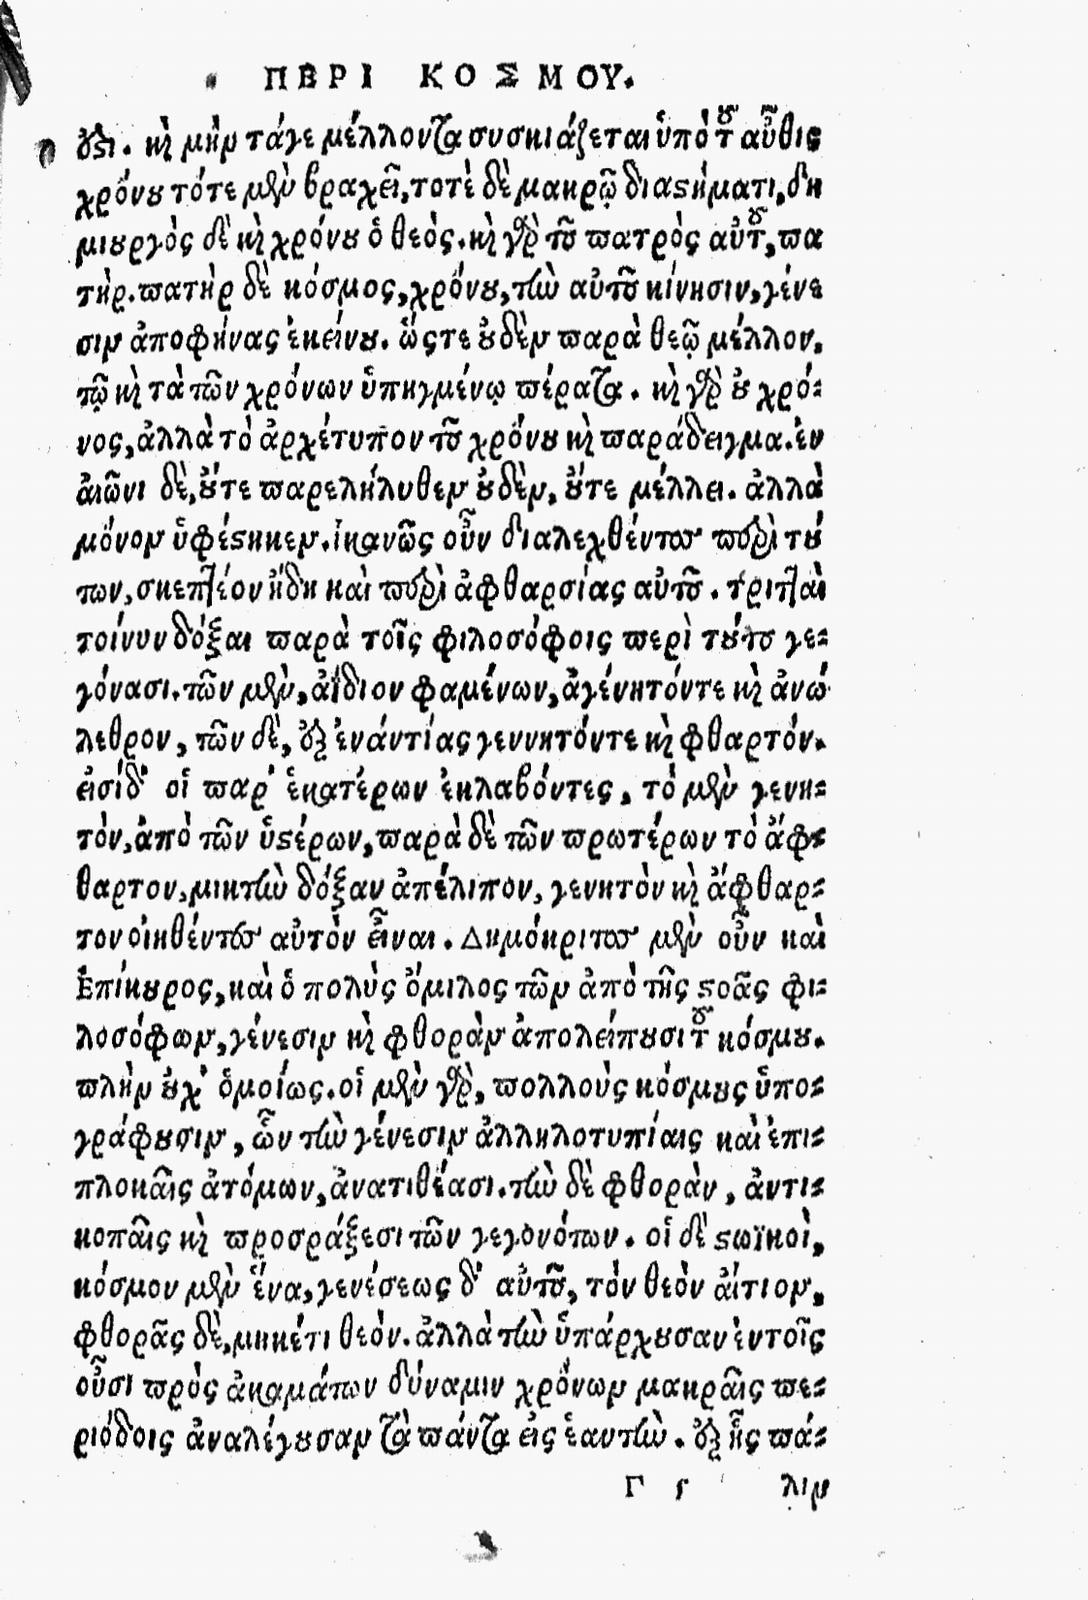 ΠΕΡΙ ΚΟΣΜΟΥ.
ὅϛι. κὴ μὴν τάγε μέλλοντα συσκιάζεται ὑπὸ τοῦ αὖθις
χρόνου τότε μὲν βραχεῖ, τοτὲ δὲ μακρῷ διαϛήματι, δη
μιουργὸς δὲ κὴ χρόνου ὁ θεὸς. κὴ γὰρ τοῦ πατρὸς αὐτοῦ, πα
τήρ. πατὴρ δὲ κόσμος, χρόνου, τὼ αὐτοῦ κίνησιν, γένε
σιν ἀποφήνας ἐκείνου. ὥςτε οὐδὲν παρὰ θεῷ μέλλον,
τῷ κὴ τὰ τῶν χρόνων ὑπηγμένῳ πέρατα. κὴ γὰρ οὐ χρό-
νος, ἀλλὰ τὸ ἀρχέτυπον τοῦ χρόνου κὴ παράδειγμα. ἐν
αἰῶνι δὲ, οὔτε παρελήλυθεν οὐδὲν, οὔτε μέλλει. ἀλλὰ
μόνον ὑφέϛηκεν. ἱκανῶς οὖν διαλεχθέντος περὶ τού
των, σκεπτέον ἤδη καὶ περὶ ἀφθαρσίας αὐτοῦ. τριτταὶ
τοίνυν δόξαι παρὰ τοῖς φιλοσόφοις περὶ τούτου γε-
γόνασι. τῶν μὲν, ἀΐδιον φαμένων, ἀγένητόντε κὴ ἀνώ
λεθρον, τῶν δὲ, ἐξ ἐναντίας γεννητόντε κὴ φθαρτόν.
εἰσίδ' οἱ παρ' ἑκατέρων ἐκλαβόντες, τὸ μὲν γενη-
τόν, ἀπὸ τῶν ὑϛέρων, παρὰ δὲ τῶν πρωτέρων τὸ ἄφ-
θαρτον, μικτὼ δόξαν ἀπέλιπον, γενητὸν κὴ ἄφθαρ-
τον οἰηθέντος αὐτὸν εἶναι. Δημόκριτος μὲν οὖν καὶ
Ἐπίκουρος, καὶ ὁ πολὺς ὅμιλος τῶν ἀπὸ τῆς ϛοᾶς φι-
λοσόφων, γένεσιν κὴ φθορὰν ἀπολείπουσι τοῦ κόσμου.
πλὴν οὐχ' ὁμοίως. οἱ μὲν γὰρ, πολλοὺς κόσμους ὑπο-
γράφουσιν, ὧν τὼ γένεσιν ἀλληλοτυπίαις καὶ ἐπι-
πλοκαῖς ἀτόμων, ἀνατιθέασι. τὼ δὲ φθορὰν, ἀντι-
κοπαῖς κὴ προσράξεσι τῶν γεγονότων. οἱ δὲ ϛωϊκοὶ,
κόσμον μὲν ἕνα, γενέσεως δ' αὐτοῦ, τὸν θεὸν αἴτιον,
φθορᾶς δὲ, μηκέτι θεόν. ἀλλὰ τὼ ὑπάρχουσαν ἐν τοῖς
οὖσι πρὸς ἀκαμάτων δύναμιν χρόνων μακραῖς πε-
ριόδοις ἀναλέγουσαν τὰ πάντα εἰς ἑαυτὼ. ἐξ ἧς πά-
Γ ϛ λιν